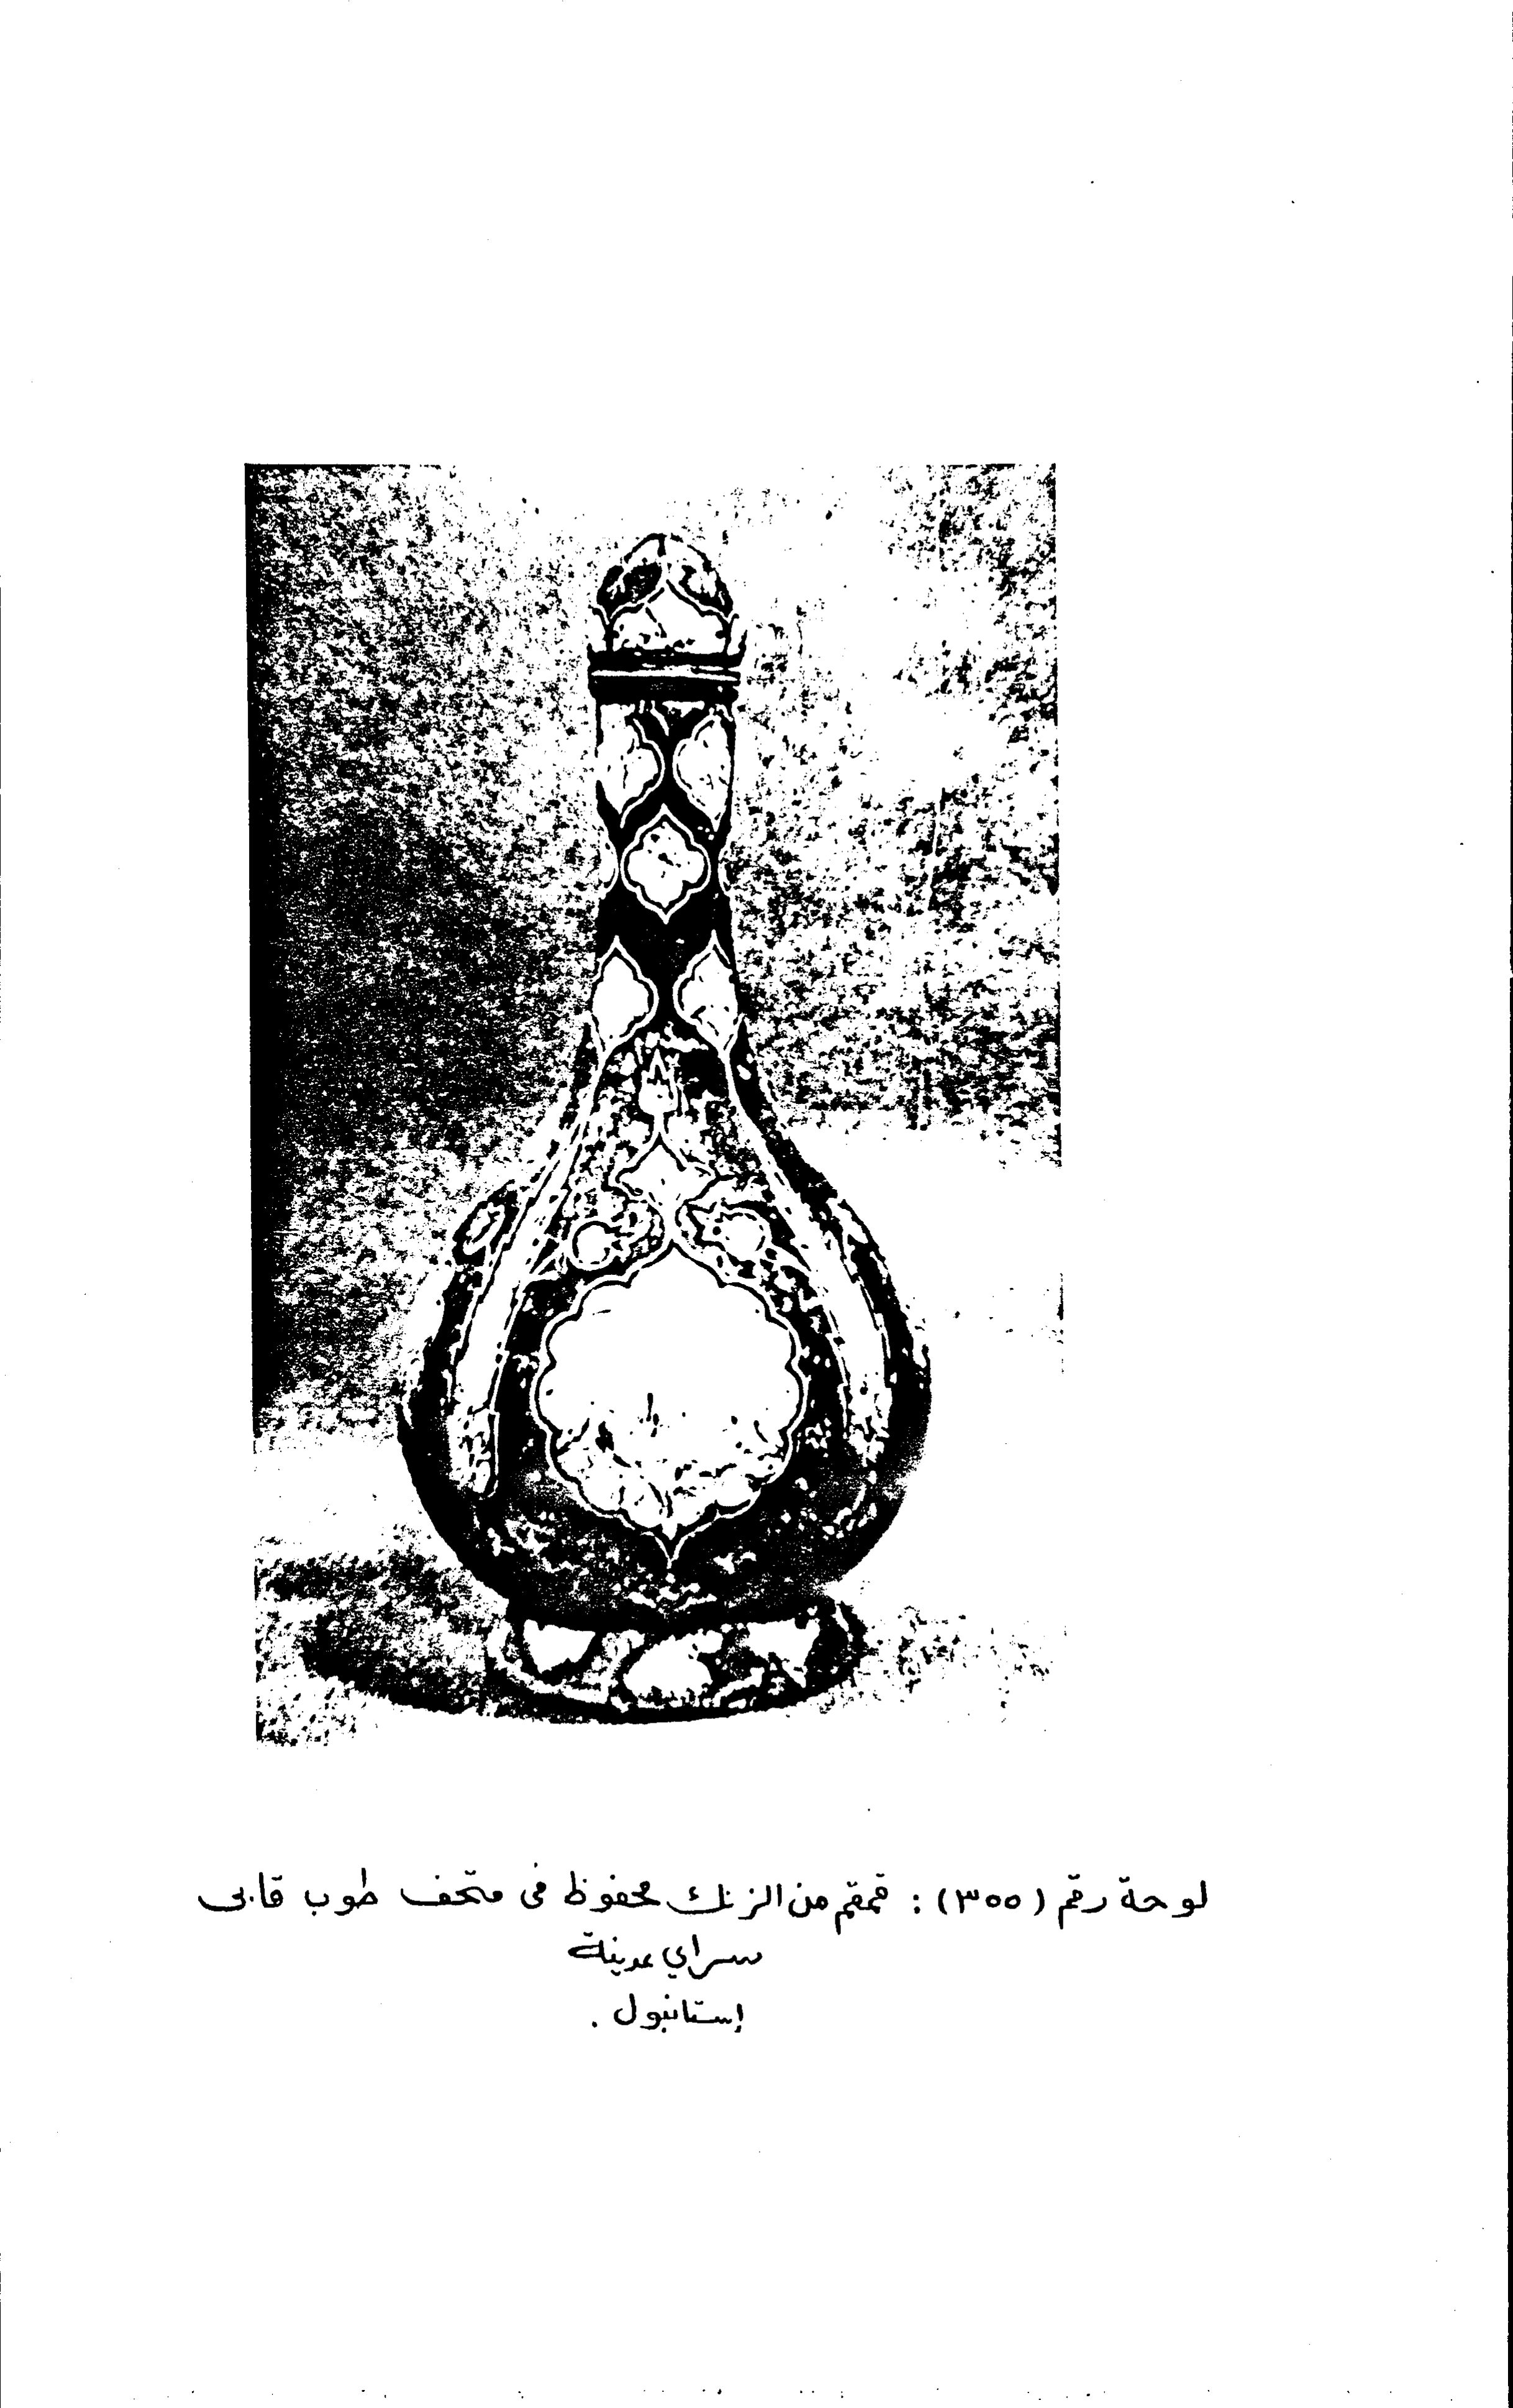 لوحة رقم (٣٥٥) : قمقم من الزنك محفوظ فى متحف طوب قابى
سراي بمدينة
إستانبول .